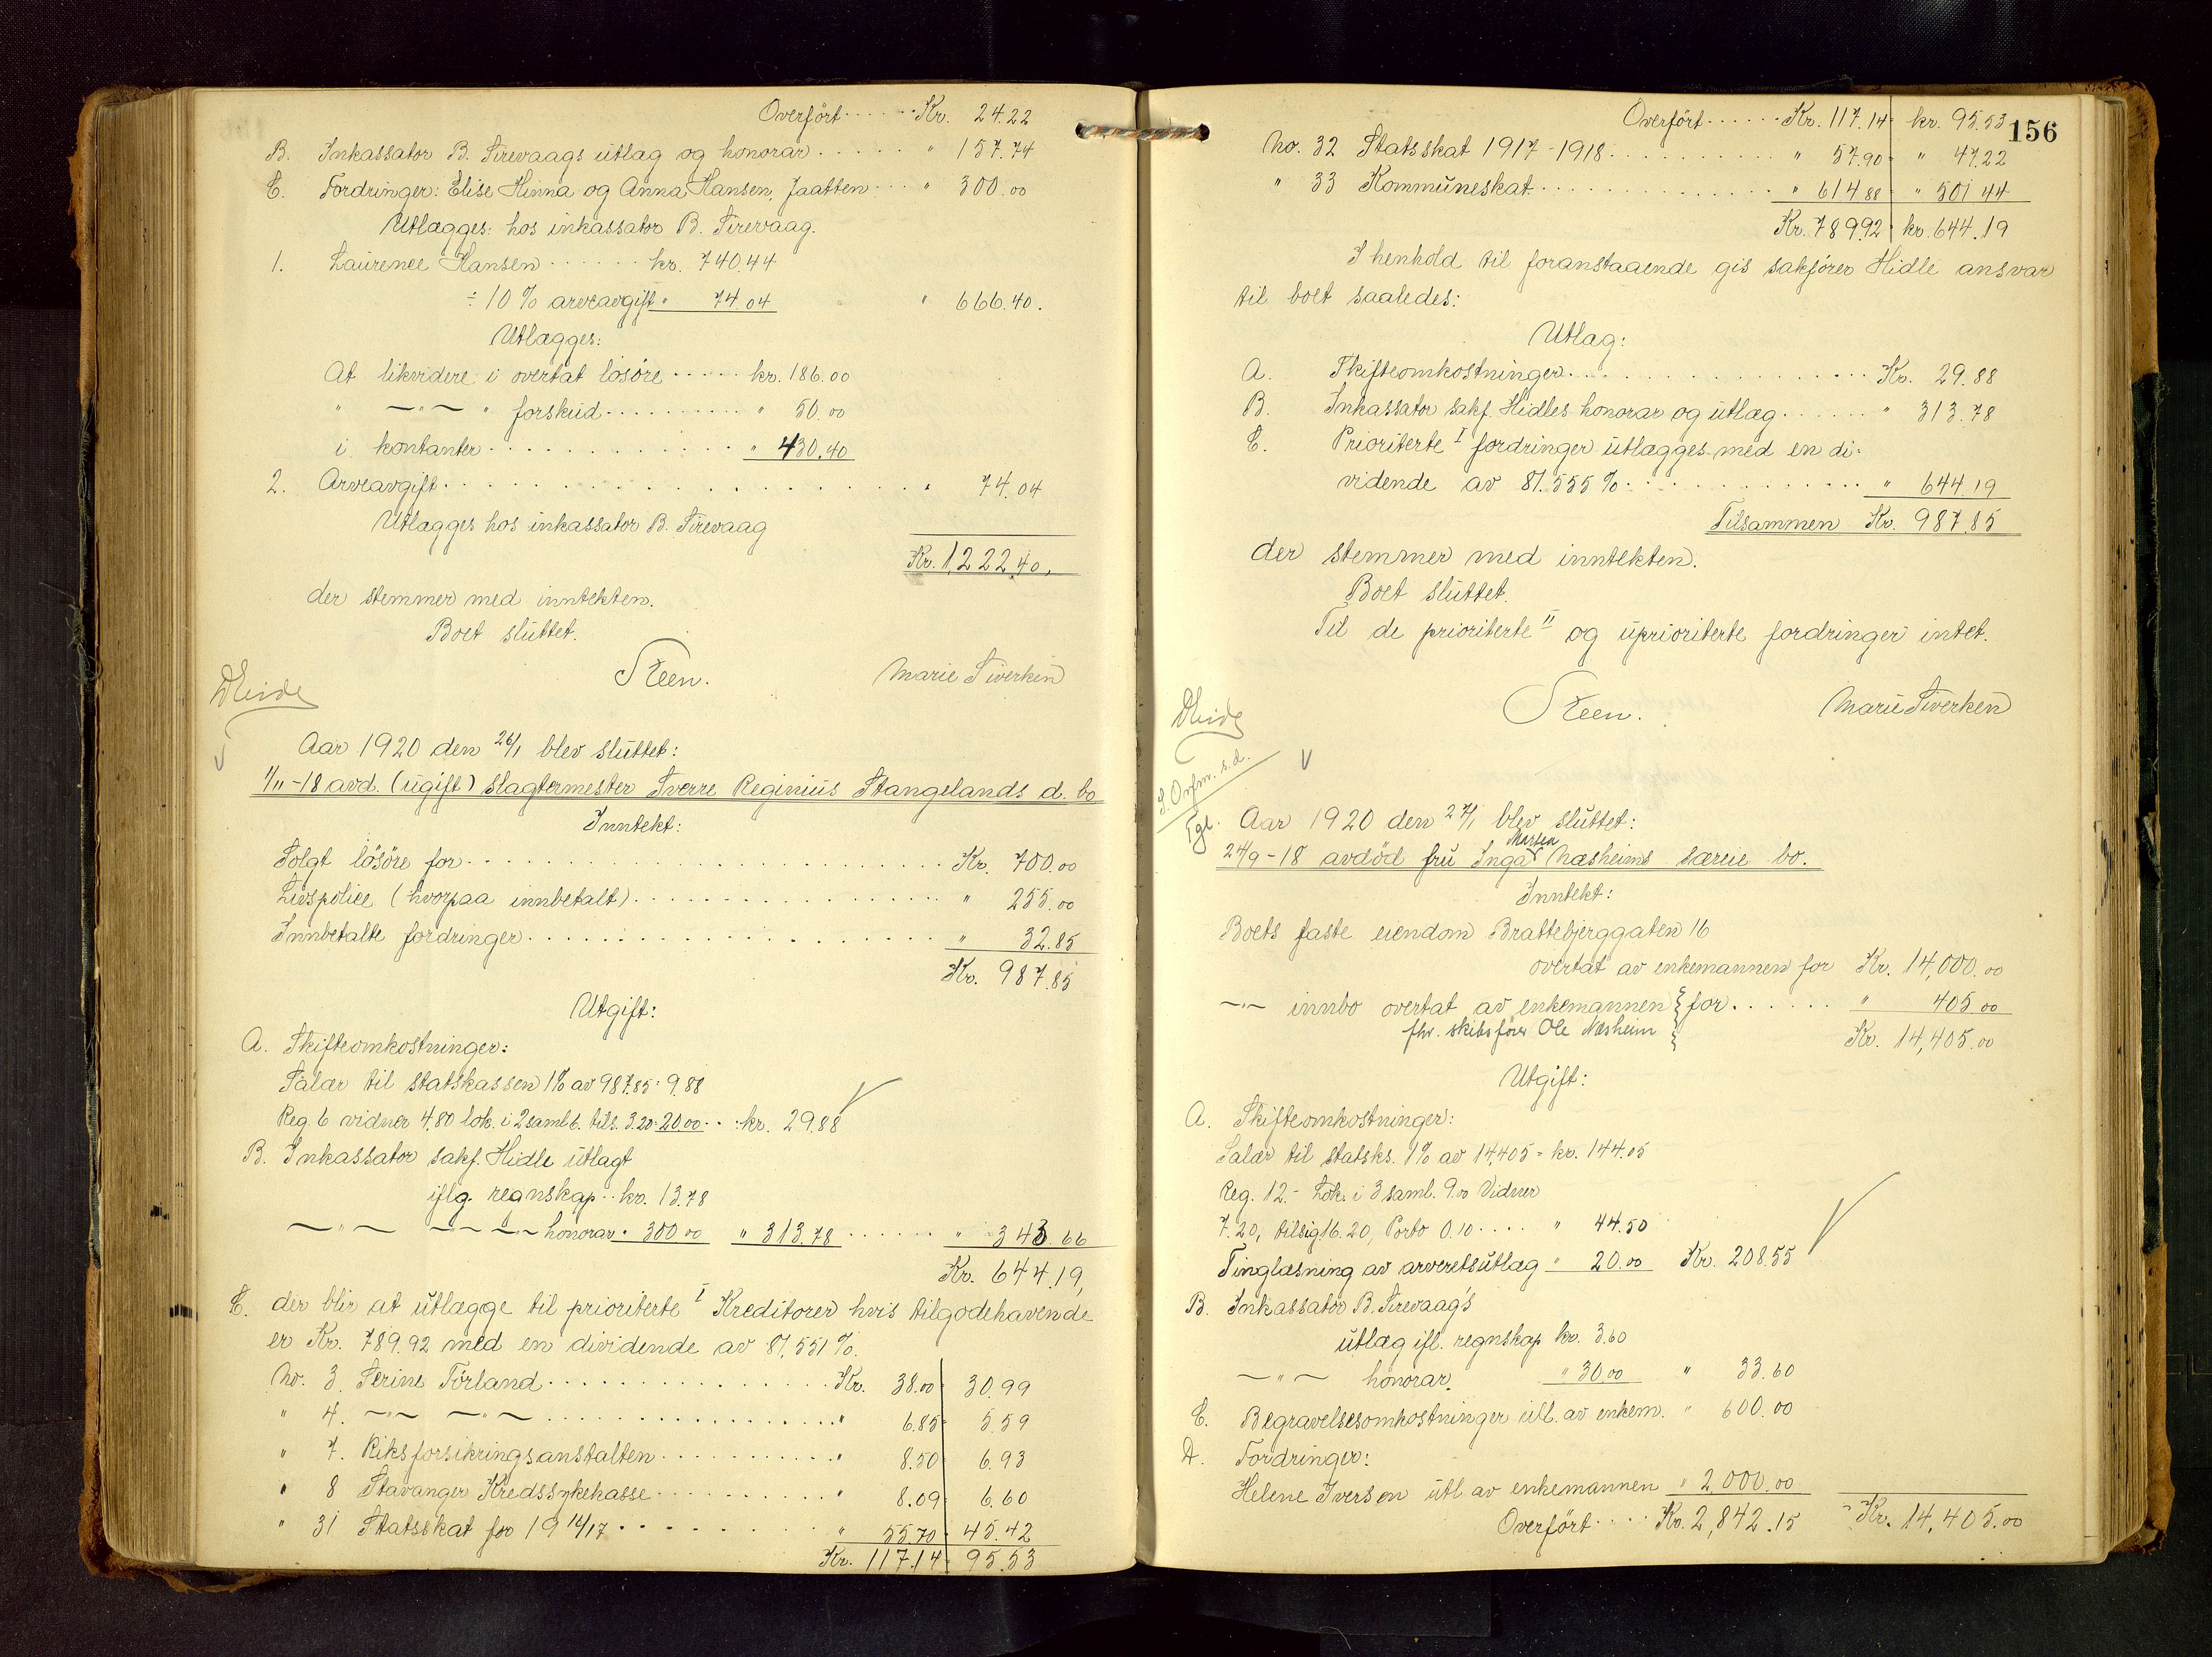 Overført ...... Kr. 24.22
B. Inkassator B. Sirevaags utlag og honorar ...... " 157.74
C. Fordringer: Elise Hinna og Anna Hansen, Jaatten ... " 300.00
Utlægges: hos inkassator B. Sirevaag.
1. Laurence Hansen ...... kr. 740.44
÷ 10 % arveavgift " 74.04 " 666.40.
Utlægges:
At likvidere i overtat løsøre ..... kr. 186.00
" —"— " forskud .......... " 50.00
i kontanter ............ " 430.40
2. Arveavgift .................. " 74.04
Utlægges hos inkassator B. Sirevaag
Kr. 1,222.40.
der stemmer med inntekten.
Boet sluttet.
Steen. Marie Siverken
Aar 1920 den 26/1 blev sluttet:
1/11-18 avd. (ugift) slagtermester Sverre Reginius Stangelands d. bo
Inntekt:
Solgt løsøre for .................. Kr. 700.00
Livspolice (hvorpaa innbetalt) .............. " 255.00
Innbetalte fordringer .................. " 32.85
Kr. 987.85
Utgift:
A. Skifteomkostninger:
Salær til statskassen 1% av 987.85 = 9.88
Reg. 6 vidner 4.80 lok. i 2 saml 6. tils. 3.20 = 20.00 .. kr. 29.88
B. Inkassator sakf. Hidle utlagt
iflg. regnskap .. kr. 13.78
—"— —"— honorar " 300.00 " 313.78 ...... " 343.66
Kr. 644.19,
C. der blir at utlægge til prioriterte I Kreditorer hvis tilgodehavende
er Kr. 789.92 med en dividende av 81,551 %.
No. 3 Serine Tørland ............... Kr. 38.00 = 30.99
" 4. —"— —"— ................ " 6.85 = 5.59
" 7. Riksforsikringsanstalten ........... " 8.50 6.93
" 8 Stavanger Kredssykekasse ........... " 8.09 = 6.60
" 31 Statsskat for 19 16/17 .......... " 55.70 = 45.42
Kr. 117.14 = 95.53
156
Overført ...... Kr. 117.14 = kr. 95.53
No. 32 Statsskat 1917-1918 ........... " 57.90 = " 47.22
" 33 Kommuneskat .............. " 614.88 = " 501.44
Kr. 789.92 = kr. 644.19
I henhold til foranstaaende gis sakfører Hidle ansvar
til boet saaledes:
Utlag:
A. Skifteomkostninger .................. Kr. 29.88
B. Inkassator sakf. Hidles honorar og utlæg ...... " 313.78
C. Prioriterte I fordringer utlægges med en di-
vidende av 81.555 % ............... " 644.19
Tilsammen Kr. 987.85
der stemmer med inntekten.
Boet sluttet.
Til de prioriterte II og uprioriterte fordringer intet.
Steen. Marie Siverken
Tgl.
Aar 1920 den 27/1 blev sluttet:
24/9-18 avdød fru Inga Næsheims særeie bo.
Inntekt:
Boets faste eiendom Brattebjerggaten 16
overtat av enkemannen for Kr. 14,000.00
—"— innbo overtat av enkemannen } for ...... " 405.00
fhv. skibsfører Ole Næsheim }
Kr. 14,405.00
Utgift:
A. Skifteomkostninger:
Salær til statsks. 1% av 14,405 = kr. 144.05
Reg. 12.- Lok. i 3 saml. 9.00 Vidner
7.20, tilsig. 16.20, Porto 0.10 .... " 44.50
Tinglæsning av arveretsutlæg " 20.00 Kr. 208.55
B. Inkassator B. Sirevaag's
utlæg ifl. regnskap kr. 3.60
—"— honorar. " 30.00 " 33.60
C. Begravelsesomkostninger utl. av enkem. " 600.00
D. Fordringer:
Helene Iversen utl av enkemannen " 2,000.00
Overført .... Kr. 2,842.15 Kr. 14,405.00